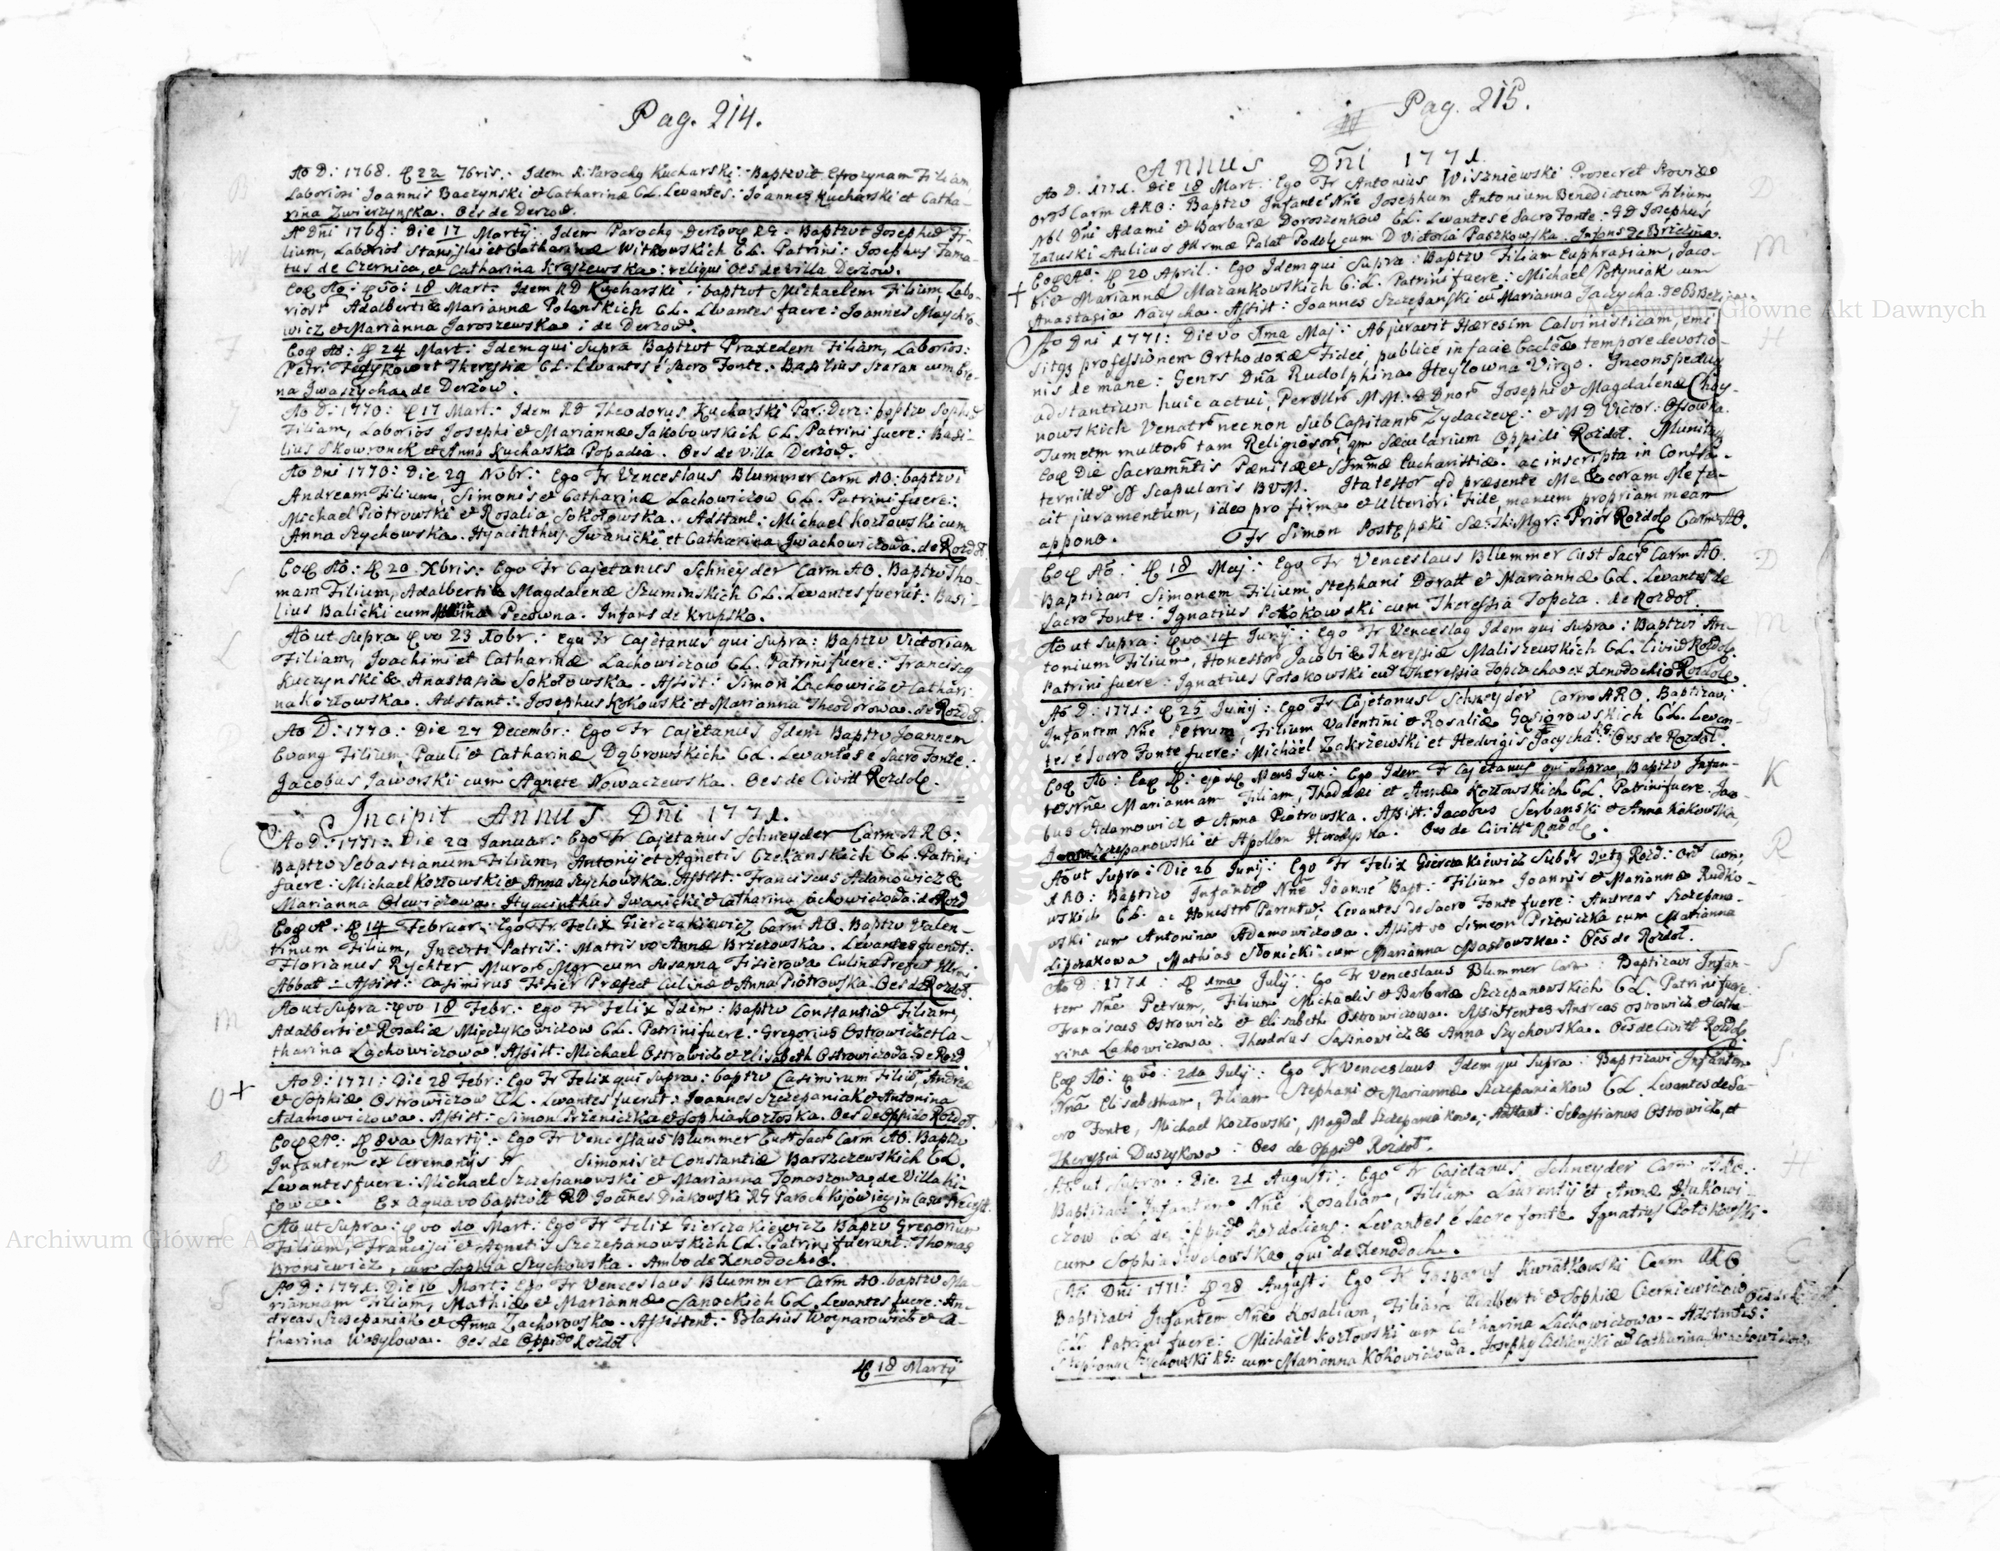 Pag. 214.
Ao D: 1768. 22 7bris. Idem R. Parochq Kucharski: Baptzvit Efrozynam Filiam,
Laboriosi Joannis Baczynski et Catharinæ CL. Levantes: Joannes Kucharski et Catha-
rina Zwierzynska. Oes de Derzow.
Ao Dni 1768: Die 17 Martÿ: Idem Parochq : Baptzvt Josephū Fi-
lium, Laborios Stanislai et Catharinæ Witkowskich CL. Patrini: Josephus Tama-
tus de Czernica, et Catharina Kraszewska: reliqui Oes de villa Derzow.
Eoq Ao: vo: 18 Mart: Idem RD Kucharski: baptzvt Michaelem Filium, Labo-
rios: Adalberti & Mariannæ Polanskich CL. Levantes fuere: Joannes Maychro-
wicz et Marianna Jaroszewska: de Derzow.
Eoq Ao: 24 Mart: Idem qui Supra Baptzvt Praxedem Filiam, Laborios:
Petri et Theressiæ CL. Levantes è Sacro Fonte. Basilius Szaran cum Ire-
na Jwaszycha de Derzow.
Ao D: 1770: 17 Mart: Idem RD Theodorus Kucharski Par: Derz: baptzv Sophiā
Filiam, Laborios Josephi et Mariannæ Jakobowskich CL. Patrini fuere: Basi-
lius Skowronek et Anna Kucharska Popadia. Oes de Villa Derzow.
Ao Dni 1770: Die 29 Nobr: Ego Fr Venceslaus Blummer Carm AO: baptzvi
Andream Filium, Simonis et Catharinæ Lachowiczow CL. Patrini fuere:
Michael Piotrowski et Rosalia Sokołowska. Adstant: Michael Kozłowski cum
Anna Szychowska. Hyacinthus Jwanicki et Catharina Jwachowiczowa. de Rozdoł.
Eoq Ao: 20 Xbris: Ego Fr Cajetanus Schneyder Carm AO. Baptzv Tho-
mam Filium, Adalberti & Magdalenæ Szuminskich CL. Levantes fuerūt: Basi-
lius Balicki cum Pecowna. Infans de Krupska.
Ao ut Supra vo 23 Xobr: Ego Fr Cajetanus qui Supra: Baptzv Victoriam
Filiam, Joachimi et Catharinæ Lachowiczow CL. Patrini fuere: Franciscq
Kuczynski & Anastasia Sokołowska. Assist: Simon Lachowicz et Cathari-
na Kozłowska. Adstant: Josephus Kokowski et Marianna Theodorowa. de Rozdoł.
Ao D: 1770: Die 27 Decembr: Ego Fr Cajetanus Idem Baptzv Joannem
Evang Filium, Pauli et Catharinæ Dąbrowskich CL. Levantes è Sacro Fonte:
Jacobus Jaworski cum Agnete Nowaczewska. Oes de Civitt Rozdoł.
Incipit Annus Dñi 1771.
Ao D: 1771: Die 20 Januar: Ego Fr Cajetanus Schneyder Carm ARO:
Baptzv Sebastianum Filium, Antonÿ et Agnetis Czekanskich CL. Patrini
fuere: Michael Kozłowski et Anna Szychowska. Assist: Franciscus Adamowicz &
Marianna Olewiczowa. Hyacinthus Jwanicki et Catharina Lachowiczowa: de Rozd
Eoq Ao: 14 Februar: Ego Fr Felix Gierczakiewicz Carm AO. Baptzv Valen-
tinum Filium, Incerti Patris: Matris vo Annæ Brzezowska. Levantes fuerūt:
Florianus Rychter Muror Mgr cum Susanna Fisierowa Culinæ Præfect
Abbat - Assist: Casimirus Fisier Præfect Culinæ et Anna Piotrowska. Oes de Rozdoł.
Ao ut Supra: vo 18 Febr: Ego Fr Felix Idem: Baptzv Constantiā Filiam,
Adalberti et Rosaliæ CL. Patrini fuere: Gregorius Ostrowicz et Ca-
tharina Lachowiczowa: Assist: Michael Ostrowicz et Elisabeth Ostrowiczowa. de Rozd
+ Ao D: 1771: Die 28 Febr: Ego Fr Felix qui Supra: baptzv Casimirum Filiū, Andreæ
et Sophiæ Ostrowiczow CL. Levantes fuerūt: Joannes Szczepaniak et Antonina
Adamowiczowa. Assist: Simon Przeniczka et Sophia Kozłoska. Oes de Oppido Rozdoł.
Eoq Ao: 8va Martÿ: Ego Fr Venceslaus Blummer Cust Sacr Carm AO. Baptzv
Infantem ex Ceremonÿs Simonis et Constantiæ Barszczewskich CL.
Levantes fuere: Michael Szczepanowski et Marianna Tomaszowa de Villa
Ex aqua vo baptzvt RD Joānes Diakowski RG Paroch in Casu Necess.
Ao ut Supra: vo 10 Mart: Ego Fr Felix Gierczakiewicz Baptzv Gregorium
Filium, Francisci et Agnetis Szczepanowskich CL. Patrini fuerunt: Thomas
Broniewicz, cum Sophia Szychowska. Ambo de Xenodochio.
Ao D: 1771. Die 16 Mart: Ego Fr Venceslaus Blummer Carm AO. baptzv Ma-
riannam Filium, Mathiæ et Mariannæ Sanockich CL. Levantes fuere: An-
dreas Szczepaniak et Anna Zachorowska. Assistent: Blasius Woynarowicz et Ca-
tharina Wasylowa. Oes de Oppido Rozdoł.
18 Martÿ
Pag. 215.
Annus Dñi 1771.
Ao D. 1771. Die 18 Mart: Ego Fr Antonius Wiszniewski Prosecret Provīæ
Carm ARO: Baptzv Infantē Nne Josephum Antonium Benedictum Filium
Nbl Dni Adami et Barbaræ Doroszenkow CL. Levantes è Sacro Fonte: GD Josephus
Załuski Aulicus Palat Podol cum D Victoria Paszkowska. Infans de Brzezina.
+ Eoq Ao: 20 April: Ego Idem qui Supra: Baptzv Filiam Euphrasiam, Jaco-
bi & Mariannæ Mazankowskich CL. Patrini fuere: Michael Potyniak cum
Anastasia Nazycha. Assist: Joannes Szczepanski cū Marianna Jaczycha.
Ao Dni 1771: Die vo 1ma Maj: Abjuravit Hæresim Calvinisticam, emi-
sitq professionem Orthodoxæ Fidei, publicè in facie Ecclæ tempore devotio-
nis de mane: Genrs Dña Rudolphina Heylowna Virgo. In conspectu
adstantium huic actui, Perillr MM. DDnor Josephi et Magdalenæ Choy-
nowskich Venatr necnon Sub Capitanr Zydaczev: et MD Victor: Ossowka.
Tum etm multor tam Religiosor, qm Sæcularium Oppidi Rozdoł. Munita
Eoq Die Sacramntis Pænitæ et Smmæ Eucharistiæ. ac inscripta in Confra-
ternittē SS Scapularis BVM. Ita testor qd præsente Me & coram Me fe-
cit juramentum, ideo pro firma et Ulteriori Fide, manum propriam meam
appono. Fr Simon Postępski Prior Rozdol Carm AO.
Eoq Ao: 18 Maj: Ego Fr Venceslaus Blummer Cust Sacr Carm AO.
Baptizavi Simonem Filium, Stephani Doratt et Mariannæ CL. Levantes de
Sacro Fonte: Ignatius Potokowski cum Theressia Topcza. de Rozdoł.
Ao ut Supra: vo 14 Junÿ: Ego Fr Venceslaq Idem qui Supra: Baptzvi An-
tonium Filium, Honestor Jacobi & Theressiæ Maliszewskich CL.
Patrini fuere: Ignatius Potokowski cū Theressia Topczacha ex Xenodochio Rozdole.
Ao D: 1771: 25 Junÿ: Ego Fr Cajetanus Schneyder Carm ARO. Baptizavi
Infantem Nne Petrum, Filium Valentini et Rosaliæ Gąsiorowskich CL. Levan-
tes è Sacro Fonte fuere: Michael Zakrzewski et Hedvigis Jacycha: Oes de Rozdoł.
Eoq Ao: Eaq: ejusq Mens Jun: Ego Idem Fr Cajetanus qui Supra, Baptzv Infan-
tē Nne Mariannam Filiam, Thaddæi et Annæ Kozłowskich CL. Patrini fuere. Jaco-
bus Adamowicz et Anna Piotrowska. Assist: Jacobus Serbanski et Anna Kokowska,
Szczepanowski et Apollon. Oes de Civitt Rozdoł.
Ao ut Supra: Die 26 Junÿ: Ego Fr Felix Gierczakiewicz Rozd:
ARO: Baptzvo Infantē Nne Joānnē Bapt: Filium Joannis et Mariannæ Rudko-
wskich CL. ac Honestor Parentū. Levantes de Sacro Fonte fuere: Andreas Szczepano-
wski cum Antonina Adamowiczowa. Assist vo Simeon Przeniczka cum Marianna
Lipczakowa, Mathias Słonicki cum Marianna Masłowska: Oes de Rozdoł.
Ao D: 1771: 1ma July: Ego Fr Venceslaus Blummer Carm: Baptizavi Infan-
tem Nne Petrum, Filium Michaelis et Barbaræ Szczepanowskich CL. Patrini fuere
Franciscus Ostrowicz et Elisabeth Ostrowiczowa. Assistentes Andreas Ostrowicz et Catha-
rina Lahowiczowa. Theodorus Sasinowicz & Anna Szychowska. Oes de Civitt Rozdole.
Eoq Ao: vo: 2da July: Ego Fr Venceslaus Idem qui Supra: Baptizavi Infantem
Nne Elisabetham, Filiam Stephani et Mariannæ Szczepaniakow CL. Levantes de Sa-
cro Fonte, Michael Kozłowski, Magdal Szczepaniakowa, Adstant: Sebastianus Ostrowicz, et
Theressia Duszykowa: Oes de Oppido Rozdoł.
Ao ut Supra: Die 21 Augusti: Ego Fr Cajetanus Schneyder Carm ARO:
Baptizavi Infantem Nne Rosaliam, Filiam Laurentÿ et Annæ Hukowi-
czow CL de Oppido Rozdoliens: Levantes è Sacro fonte Ignatius Potokowski
cum Sophia Szychowska, qui de Xenodoch.
Ao Dni 1771: 28 August: Ego Fr Gasparus Kwiatkowski Carm ARO
Baptizavi Infantem Nne Rosaliam, Filiam Adalberti et Sophiæ Czerniewiczow
CL Patrini fuere: Michael Kozłowski cum Catharina Lachowiczowa - Adstantes:
Stephanus Szychowski RG: cum Marianna Kokowiczowa. Josephq cū Catharina Jwachowiczowa
Archiwum Główne Akt Dawnych
Archiwum Główne Akt Dawnych